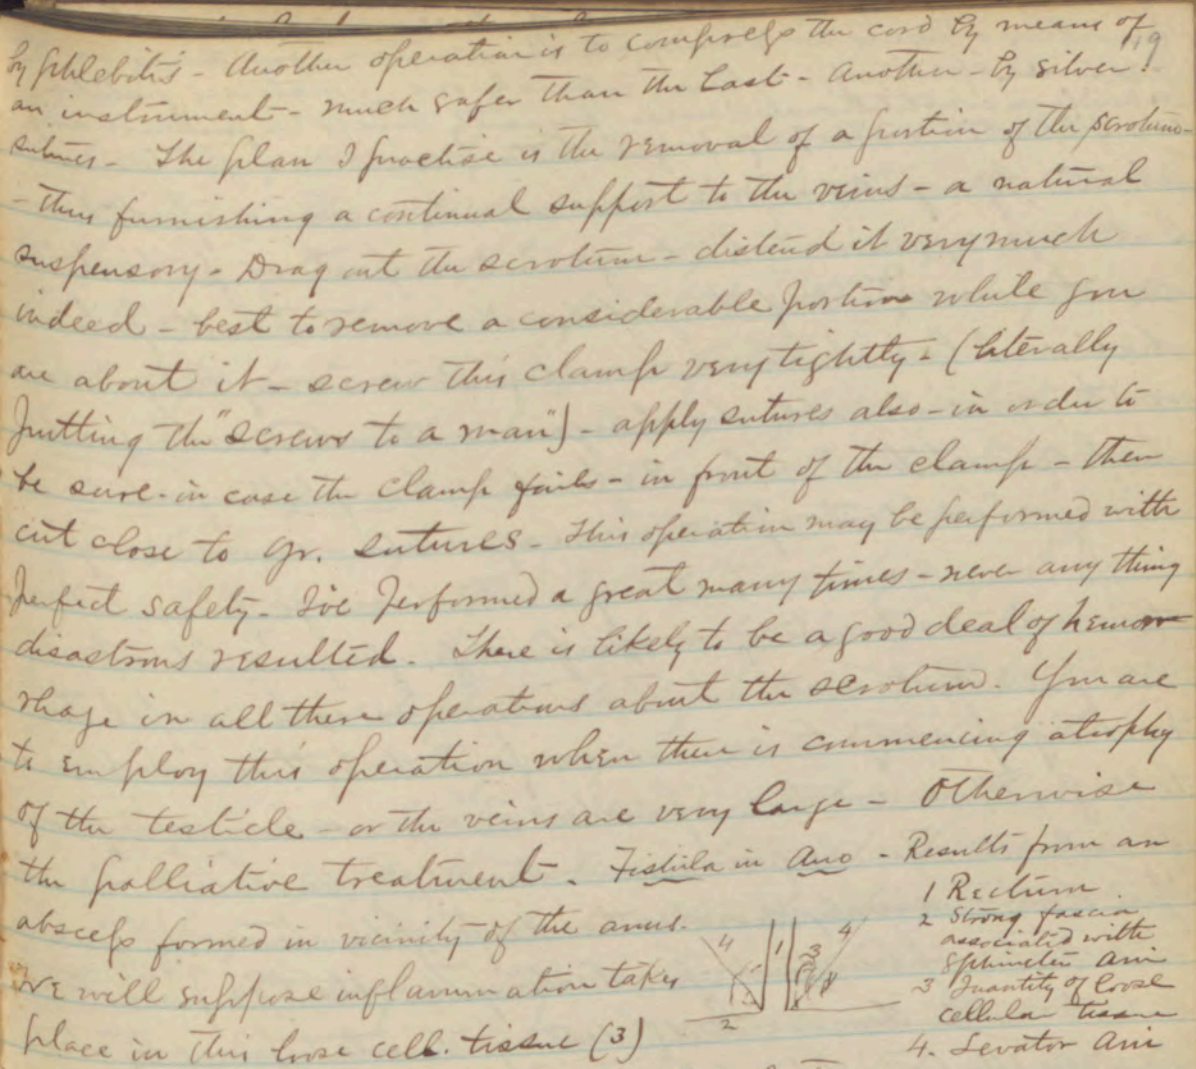 by phlebitis - Another operation is to compress the cord by means of
19
an instrument - much safer than the last - Another - by silver
sutures - The plan I practise is the removal of a portion of the scrotum -
- thus furnishing a continual support to the veins - a natural
suspensory - Drag out the scrotum - distend it very much
indeed - best to remove a considerable portion while you
are about it - screw this clamp very tightly - (literally
putting the "screws to a man") - apply sutures also - in order to
be sure - in case the clamp fails - in front of the clamp - then
cut close to yr. sutures - This operation may be performed with
perfect safety - I've performed a great many times - never any thing
disastrous resulted. There is likely to be a good deal of hemor
rhage in all these operations about the scrotum. You are
to employ this operation when there is commencing atrophy
of the testicle - or the veins are very large - Otherwise
the palliative treatment. Fistula in Ano - Results from an
abscess formed in vicinity of the anus.
We will suppose inflammation takes
place in this loose cell. tissue (3)
4 1 3 4
2
1 Rectum.
2 Strong fascia
associated with
Sphincter Ani
3 Quantity of loose
cellular tissue
4. Levator Ani